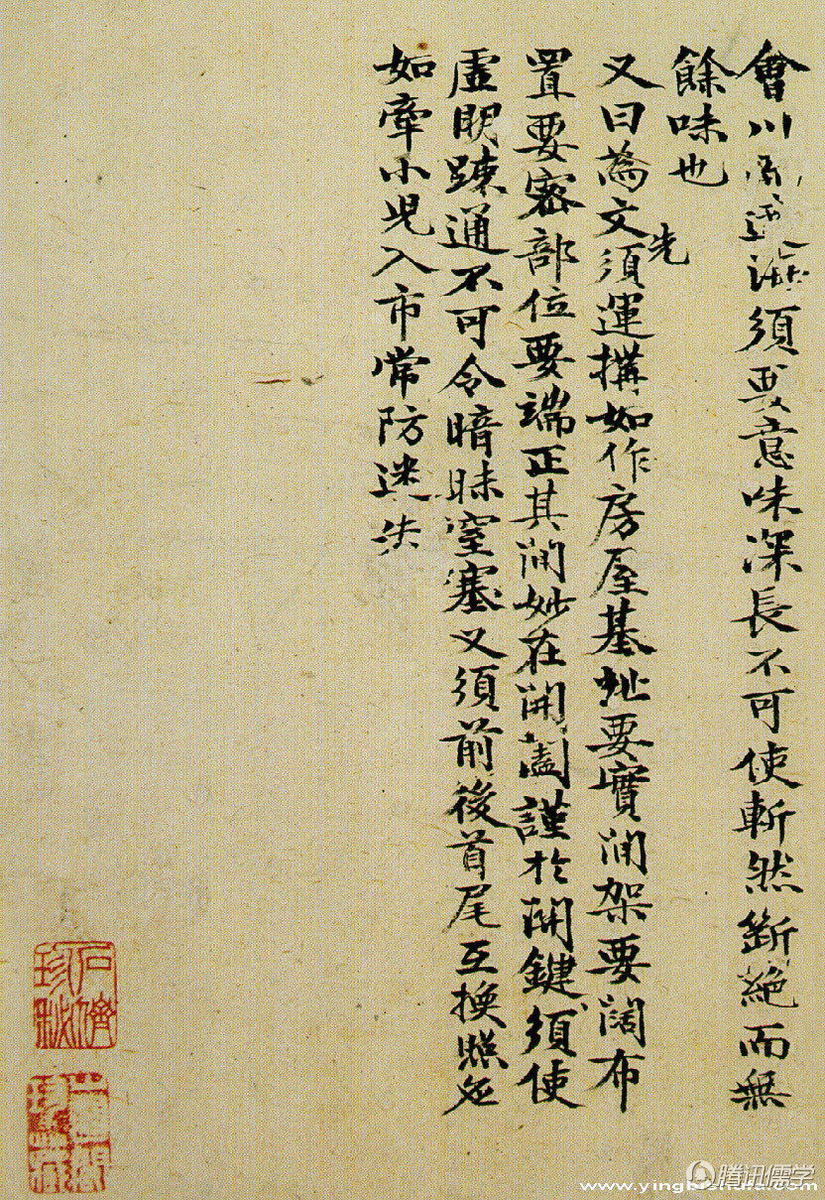 會川流 須要意味深長不可使斬然斷絕而無
餘味也
又曰為文須先運搆如作房屋基址要實間架要闊布
置要密部位要端正其間妙在開闔謹於關鍵須使
虛明疎通不可令暗昧窒塞又須前後首尾互換照應
如牽小兒入市常防迷失
石儕珍秘
腾讯儒学
www.yingbishufa.com